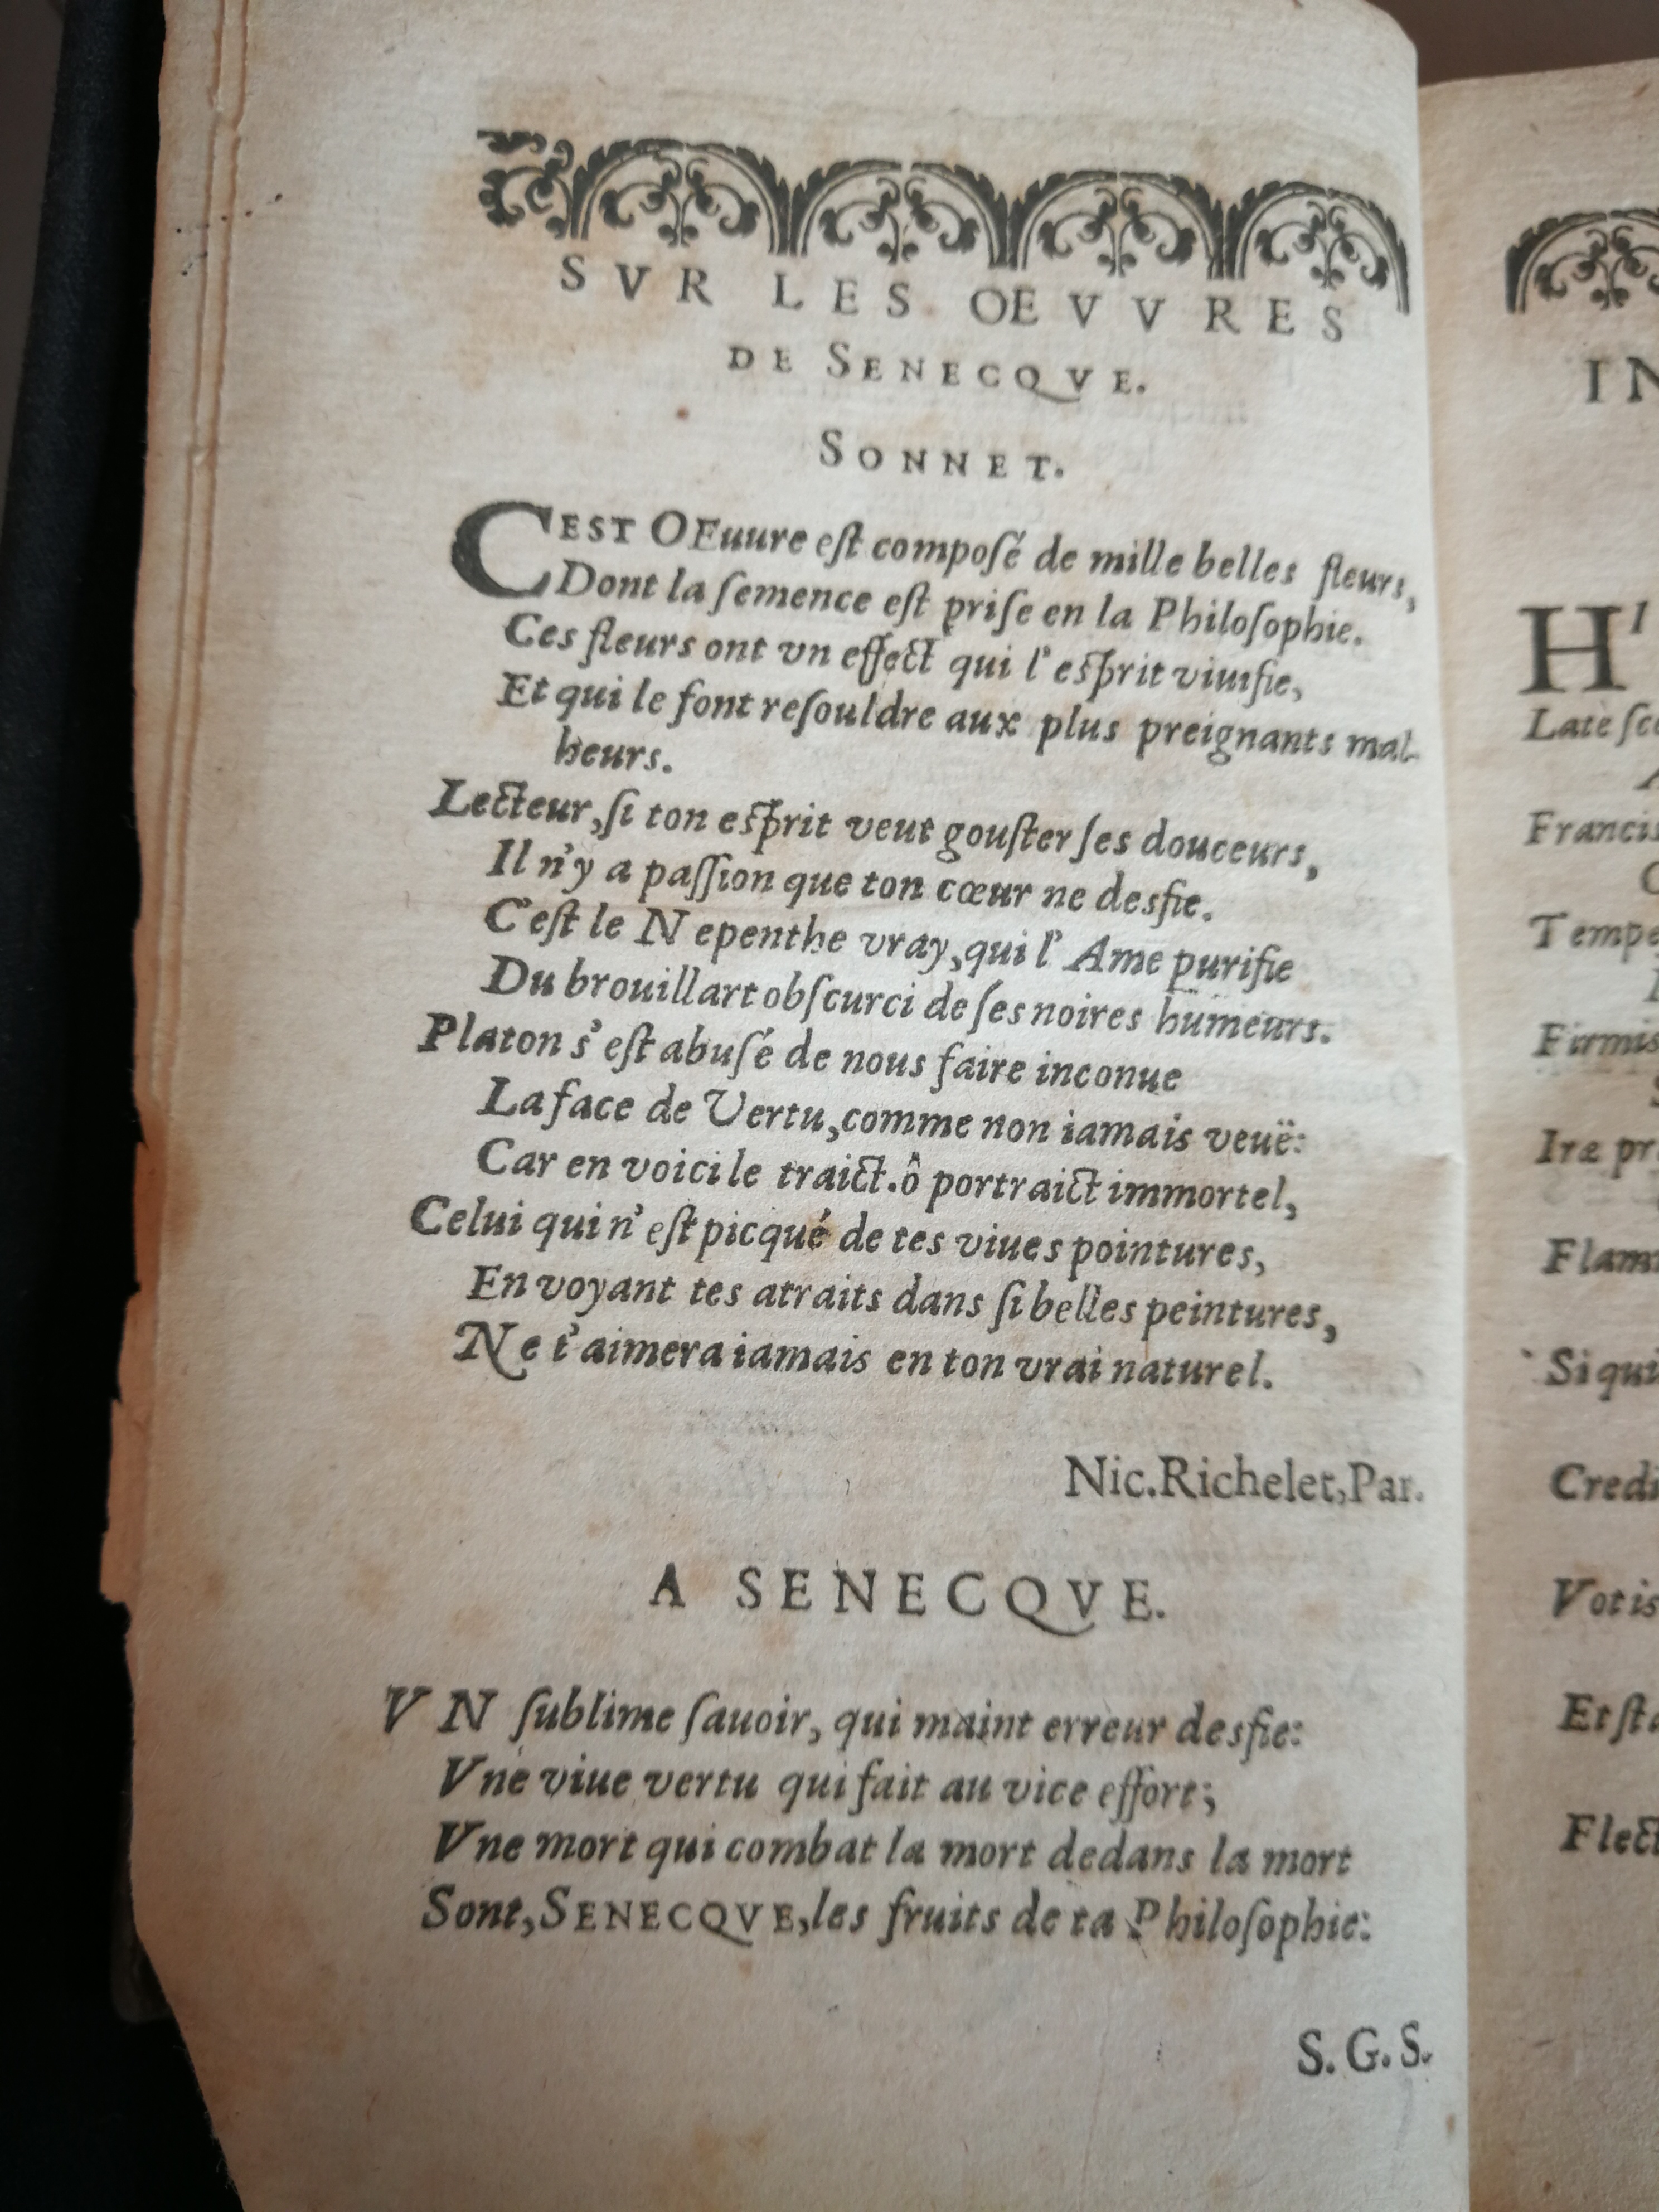 SVR LES OEVVRES
DE SENECQVE.
SONNET.
CEST OEuure eſt compoſé de mille belles fleurs,
Dont la ſemence eſt priſe en la Philoſophie.
Ces fleurs ont vn effect qui l'eſprit viuifie,
Et qui le font reſouldre aux plus preignants mal-
heurs.
Lecteur, ſi ton eſprit veut gouſter ſes douceurs,
Il n'y a paſſion que ton cœur ne desfie.
C'eſt le Nepenthe vray, qui l'Ame purifie
Du brouillart obſcurci de ſes noires humeurs.
Platon s'eſt abuſé de nous faire inconue
La face de Vertu, comme non iamais veuë:
Car en voici le traict. ô portraict immortel,
Celui qui n'eſt picqué de tes viues pointures,
En voyant tes atraits dans ſi belles peintures,
Ne t'aimera iamais en ton vrai naturel.
Nic. Richelet, Par.
A SENECQVE.
VN ſublime ſauoir, qui maint erreur desfie:
Vne viue vertu qui fait au vice effort;
Vne mort qui combat la mort dedans la mort
Sont, SENECQVE, les fruits de ta Philoſophie:
S. G. S.
IN
HI
Late ſce
Francis
Tempe
Firmis
Iræ pr
Flam
Si qui
Credi
Votis
Et ſta
Flect